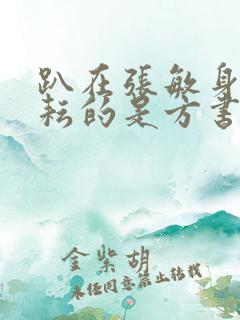 趴在張敏身
耘的是方書
金紫胡
未经同意禁止转载